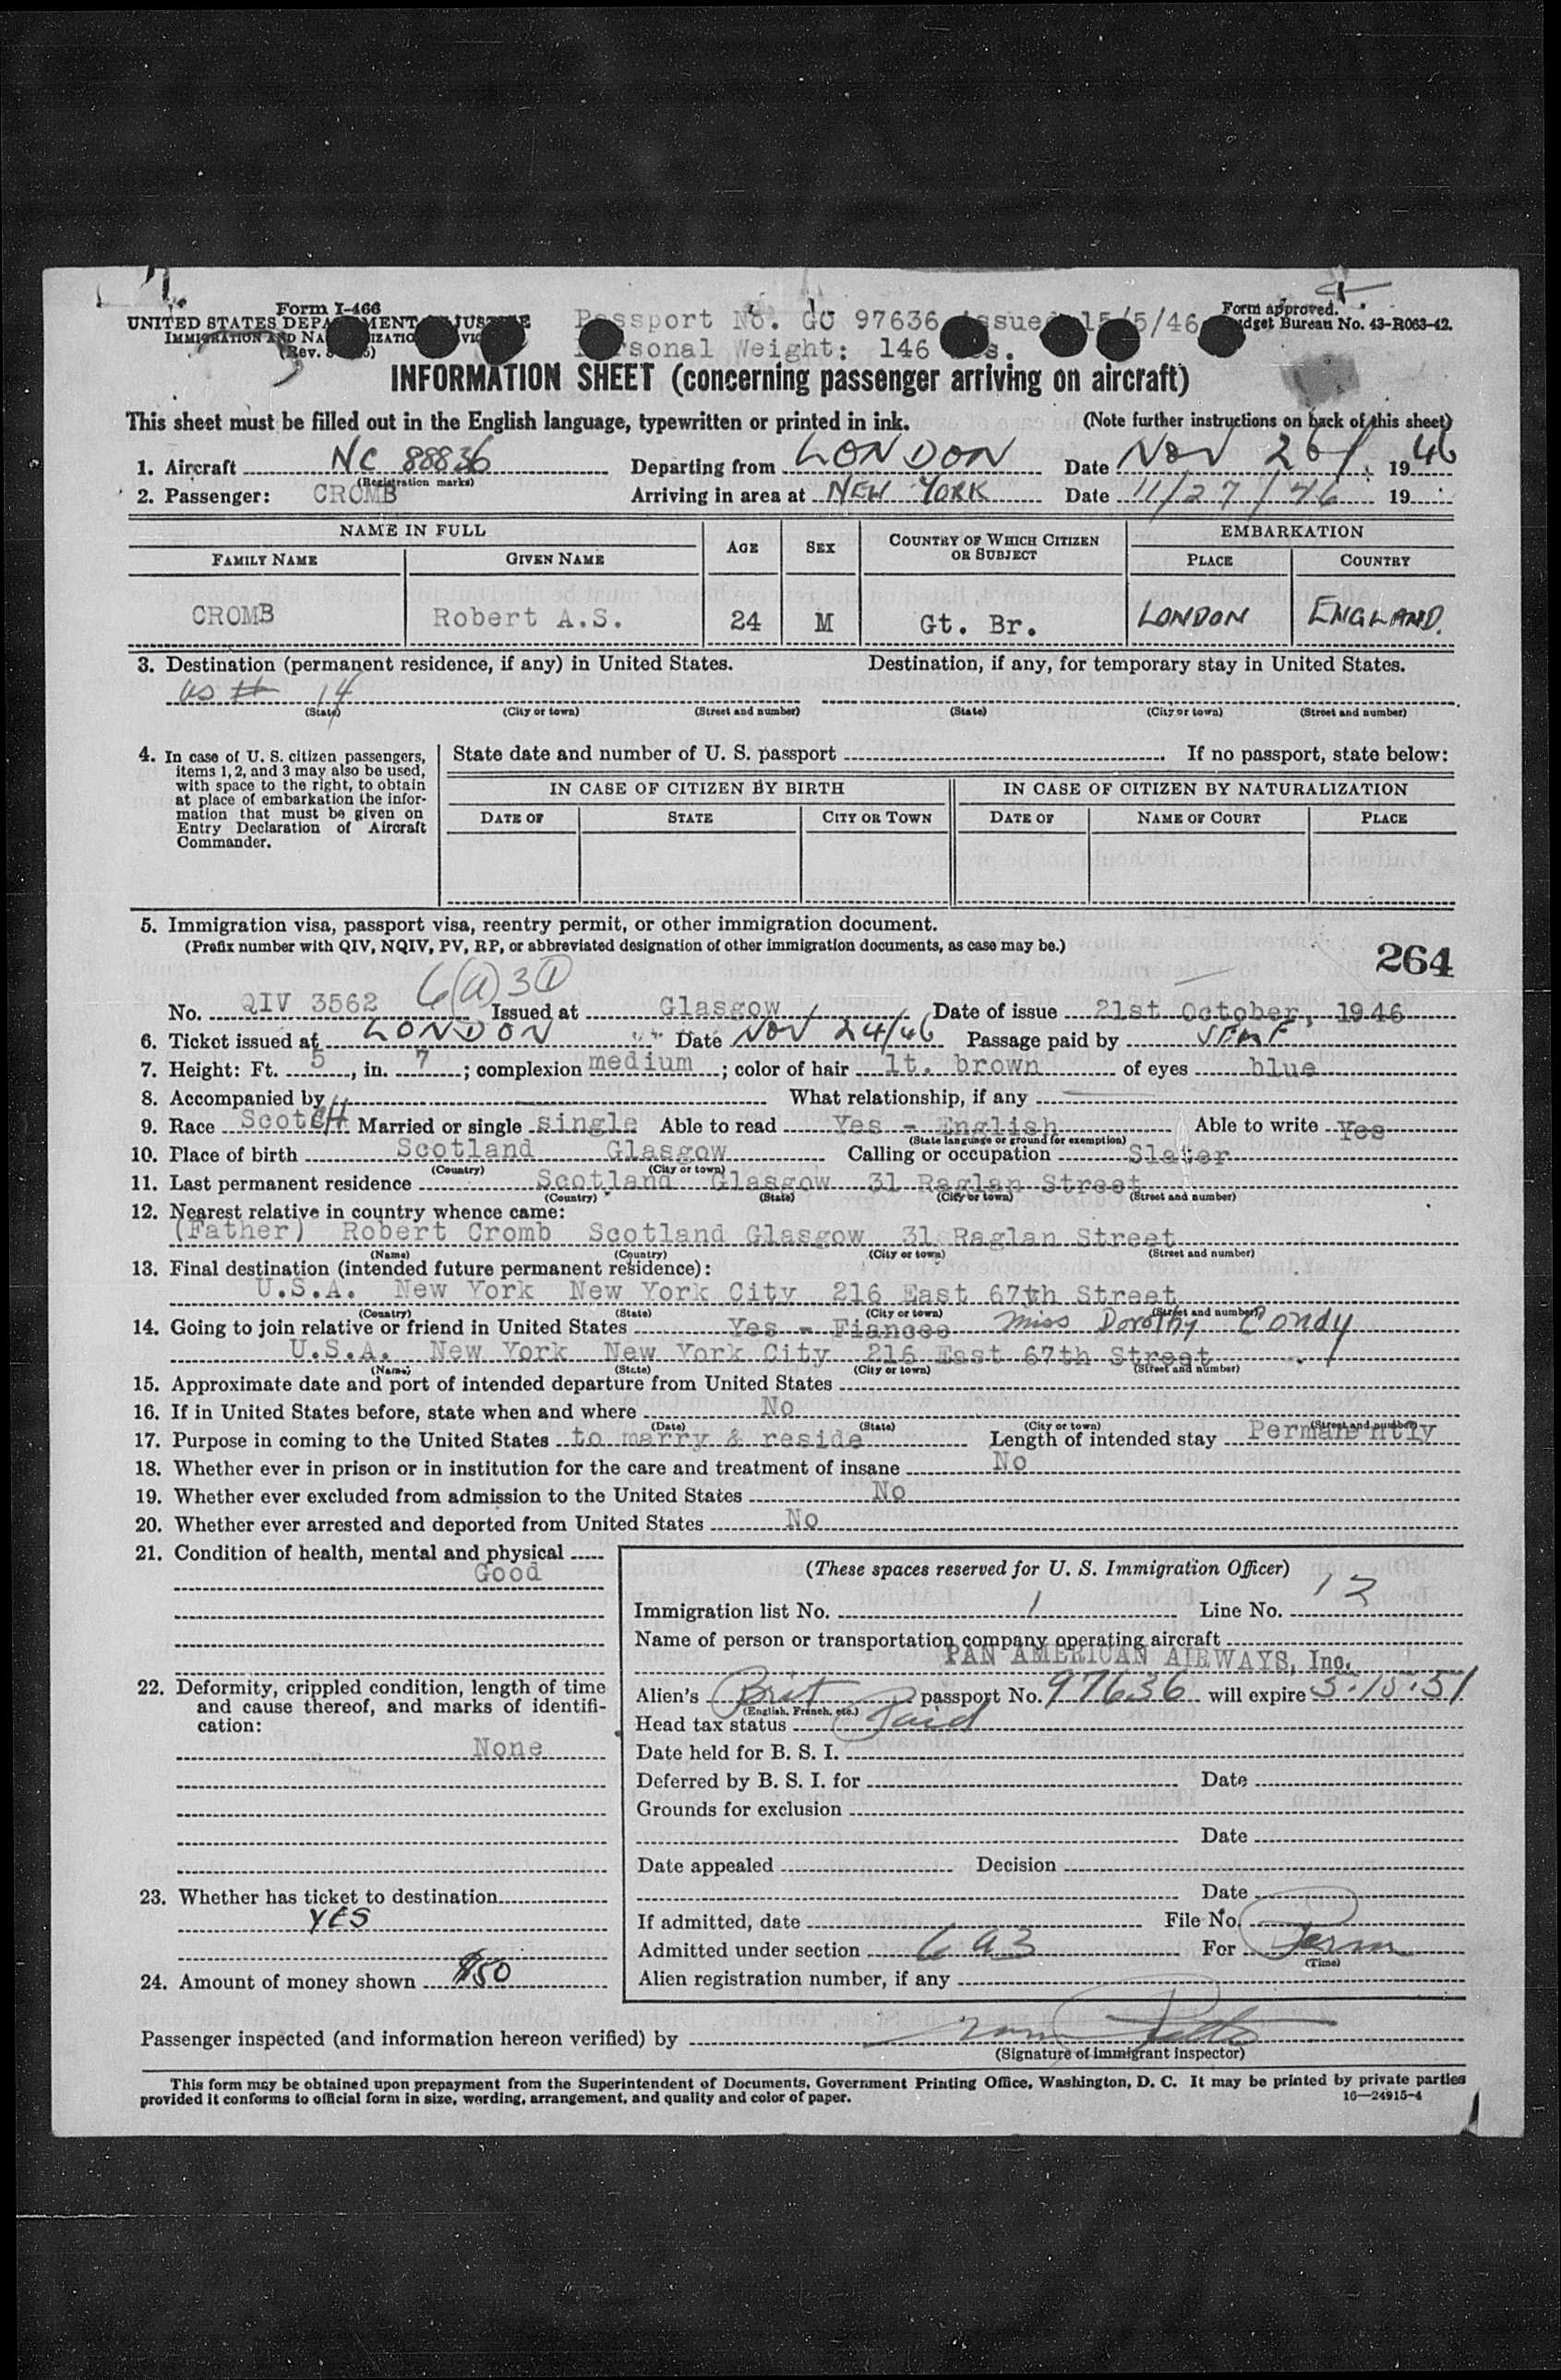 Form I-466
UNITED STATES DEPARTMENT OF JUSTICE
IMMIGRATION AND NATURALIZATION SERVICE
Passport No. GC 97636 issued 15/5/46
Personal Weight: 146 lbs.
Form approved.
Budget Bureau No. 43-R063-42.
INFORMATION SHEET (concerning passenger arriving on aircraft)
This sheet must be filled out in the English language, typewritten or printed in ink. (Note further instructions on back of this sheet)
1. Aircraft NC 88836 Departing from LONDON Date NOV 26/ 1946
(Registration marks)
2. Passenger: CROMB Arriving in area at NEW YORK Date 11/27/46 19
NAME IN FULL
FAMILY NAME GIVEN NAME AGE SEX COUNTRY OF WHICH CITIZEN OR SUBJECT EMBARKATION PLACE COUNTRY
CROMB Robert A.S. 24 M Gt. Br. LONDON ENGLAND.
3. Destination (permanent residence, if any) in United States. Destination, if any, for temporary stay in United States.
as # 14
(State) (City or town) (Street and number) (State) (City or town) (Street and number)
4. In case of U. S. citizen passengers, items 1, 2, and 3 may also be used, with space to the right, to obtain at place of embarkation the information that must be given on Entry Declaration of Aircraft Commander.
State date and number of U. S. passport If no passport, state below:
IN CASE OF CITIZEN BY BIRTH IN CASE OF CITIZEN BY NATURALIZATION
DATE OF STATE CITY OR TOWN DATE OF NAME OF COURT PLACE
5. Immigration visa, passport visa, reentry permit, or other immigration document.
(Prefix number with QIV, NQIV, PV, RP, or abbreviated designation of other immigration documents, as case may be.)
264
6(a)3
No. QIV 3562 Issued at Glasgow Date of issue 21st October, 1946
6. Ticket issued at LONDON Date NOV 24/46 Passage paid by SELF
7. Height: Ft. 5, in. 7; complexion medium; color of hair lt. brown of eyes blue
8. Accompanied by What relationship, if any
9. Race Scotch Married or single single Able to read Yes - English Able to write Yes
(State language or ground for exemption)
10. Place of birth Scotland Glasgow Calling or occupation Slater
(Country) (City or town)
11. Last permanent residence Scotland Glasgow 31 Raglan Street
(Country) (State) (City or town) (Street and number)
12. Nearest relative in country whence came:
(Father) Robert Cromb Scotland Glasgow 31 Raglan Street
(Name) (Country) (City or town) (Street and number)
13. Final destination (intended future permanent residence):
U.S.A. New York New York City 216 East 67th Street
(Country) (State) (City or town) (Street and number)
14. Going to join relative or friend in United States Yes - Fiancee Miss Dorothy Condy
U.S.A. New York New York City 216 East 67th Street
(Name) (State) (City or town) (Street and number)
15. Approximate date and port of intended departure from United States
16. If in United States before, state when and where No
(Date) (State) (City or town) (Street and number)
17. Purpose in coming to the United States to marry & reside Length of intended stay Permanently
18. Whether ever in prison or in institution for the care and treatment of insane No
19. Whether ever excluded from admission to the United States No
20. Whether ever arrested and deported from United States No
21. Condition of health, mental and physical
Good
22. Deformity, crippled condition, length of time and cause thereof, and marks of identification:
None
23. Whether has ticket to destination
YES
24. Amount of money shown $50
(These spaces reserved for U. S. Immigration Officer)
Immigration list No. 1 Line No. 12
Name of person or transportation company operating aircraft
PAN AMERICAN AIRWAYS, Inc.
Alien's Brit passport No. 97636 will expire 5-15-51
(English, French, etc.)
Head tax status Paid
Date held for B. S. I.
Deferred by B. S. I. for Date
Grounds for exclusion
Date
Date appealed Decision
Date
If admitted, date File No.
Admitted under section 6 a 3 For Perm
(Time)
Alien registration number, if any
Passenger inspected (and information hereon verified) by
(Signature of immigrant inspector)
This form may be obtained upon prepayment from the Superintendent of Documents, Government Printing Office, Washington, D. C. It may be printed by private parties
provided it conforms to official form in size, wording, arrangement, and quality and color of paper. 16—24915-4